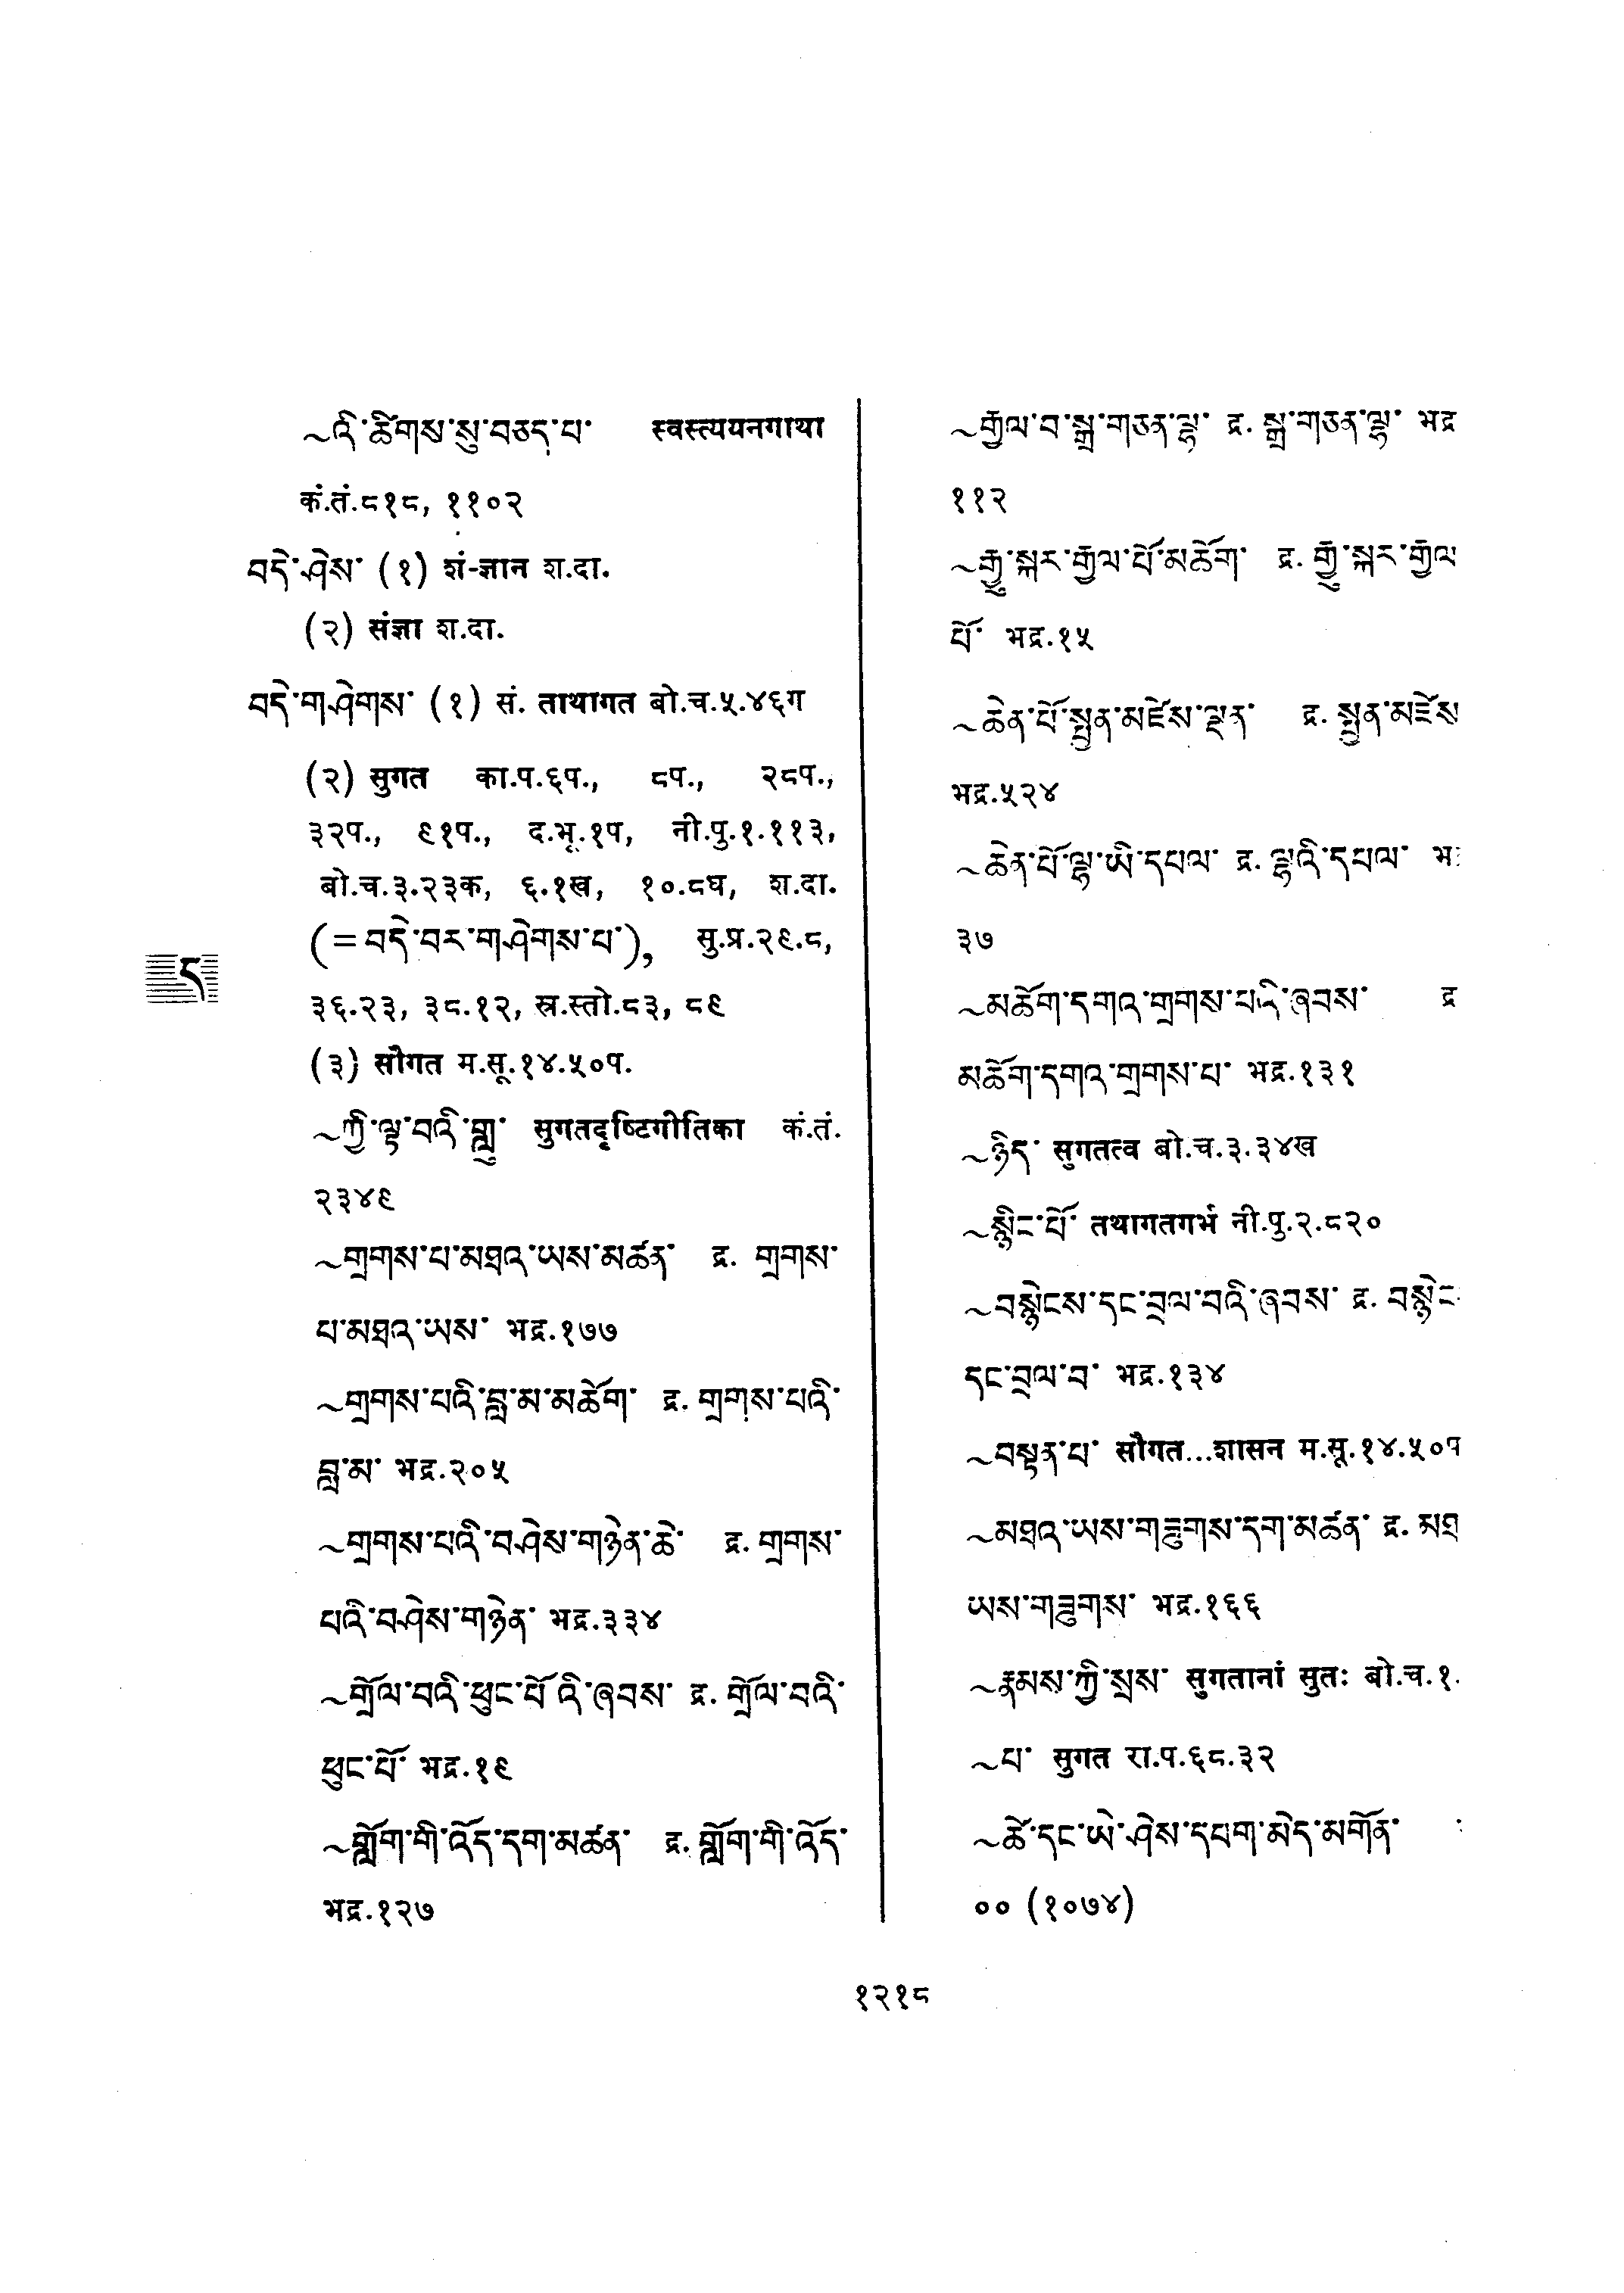 ~འི་ཚིགས་སུ་བཅད་པ་ स्वस्त्ययनगाथा
कं.तं.८१८, ११०२
བདེ་ཤེས་ (१) शं-ज्ञान श.दा.
(२) संज्ञा श.दा.
བདེ་གཤེགས་ (१) सं. ताथागत बो.च.५.४६ग
(२) सुगत का.प.६प., ८प., २८प.,
३२प., ९१प., द.भू.१प, नी.पु.१.११३,
बो.च.३.२३क, ६.१ख, १०.८घ, श.दा.
(=བདེ་བར་གཤེགས་པ་), सु.प्र.२९.८,
३६.२३, ३८.१२, स्र.स्तो.८३, ८९
(३) सौगत म.सू.१४.५०प.
~ཀྱི་ལྟ་བའི་གླུ་ सुगतदृष्टिगीतिका कं.तं.
२३४९
~གྲགས་པ་མཐའ་ཡས་མཚན་ द्र. གྲགས་
པ་མཐའ་ཡས་ भद्र.१७७
~གྲགས་པའི་བླ་མ་མཆོག་ द्र. གྲགས་པའི་
བླ་མ་ भद्र.२०५
~གྲགས་པའི་བཤེས་གཉེན་ཆེ་ द्र. གྲགས་
པའི་བཤེས་གཉེན་ भद्र.३३४
~གྲོལ་བའི་ཕུང་པོ་འི་ཞབས་ द्र. གྲོལ་བའི་
ཕུང་པོ་ भद्र.१९
~གློག་གི་འོད་དག་མཚན་ द्र. གློག་གི་འོད་
भद्र.१२७
ད
~རྒྱལ་བ་སྒྲ་གཅན་ལྷ་ द्र. སྒྲ་གཅན་ལྷ་ भद्र
११२
~རྒྱུ་སྐར་རྒྱལ་པོ་མཆོག་ द्र. རྒྱུ་སྐར་རྒྱལ
པོ་ भद्र.१५
~ཆེན་པོ་སྤྱན་མཛེས་ལྡན་ द्र. སྤྱན་མཛེས
भद्र.५२४
~ཆེན་པོ་ལྷ་ཡི་དཔལ་ द्र. ལྷའི་དཔལ་ भ
३७
~མཆོག་དགའ་གྲགས་པའི་ཞབས་ द्र
མཆོག་དགའ་གྲགས་པ་ भद्र.१३१
~ཉིད་ सुगतत्व बो.च.३.३४ख
~སྙིང་པོ་ तथागतगर्भ नी.पु.२.८२०
~བསྙེངས་དང་བྲལ་བའི་ཞབས་ द्र. བསྙེང
དང་བྲལ་བ་ भद्र.१३४
~བསྟན་པ་ सौगत...शासन म.सू.१४.५०प
~མཐའ་ཡས་གཟུགས་དག་མཚན་ द्र. མཐ
ཡས་གཟུགས་ भद्र.१६६
~རྣམས་ཀྱི་སྲས་ सुगतानां सुतः बो.च.१.
~པ་ सुगत रा.प.६८.३२
~ཚེ་དང་ཡེ་ཤེས་དཔག་མེད་མགོན་
०० (१०७४)
१२१८